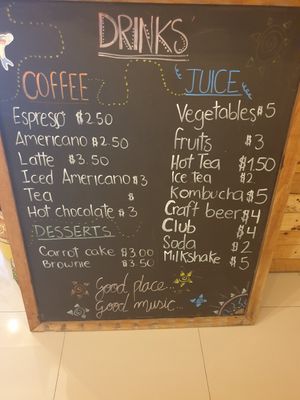 DRINKS
COFFEE
Espresso $2.50
Americano $2.50
Latte $3.50
Iced Americano $3
Tea $
Hot chocolate $3
DESSERTS
Carrot cake $3.00
Brownie $3.50
JUICE
Vegetables $5
fruits $3
Hot Tea $1.50
Ice tea $2
Kombucha $5
Craft beer $4
Club $4
Soda $2
Milkshake $5
Good place...
Good music...